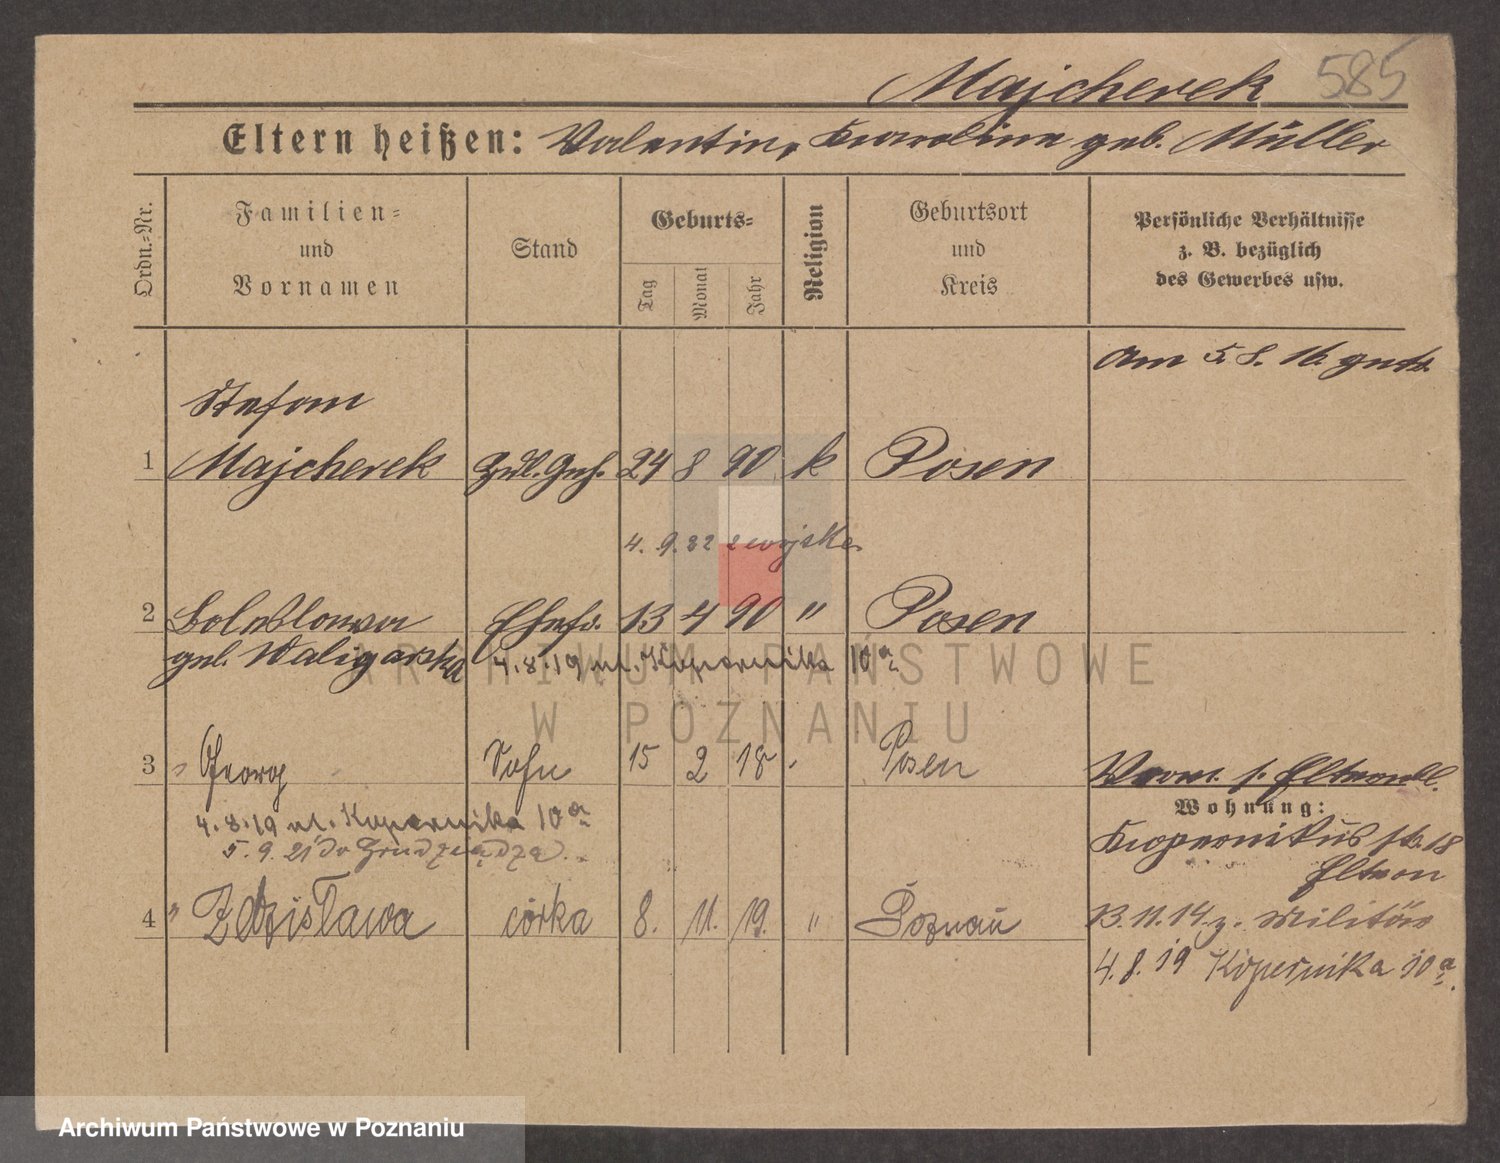 Majcherek 585
Eltern heißen: Valentin, Karolina geb. Müller
Ordn.-Nr.
Familien-
und
Vornamen
Stand
Geburts-
Tag
Monat
Jahr
Religion
Geburtsort
und
Kreis
Persönliche Verhältnisse
z. B. bezüglich
des Gewerbes usw.
Am 5. 8. 16.
Stefan
1 Majcherek 24 8 90 k Posen
4. 9. 22 z wojska
2 Boleslawa Ehefr. 13 4 90 " Posen
geb. Waligorska 4.8.19 ul. Kopernika 10a
3 Georg Sohn 15 2 18 Posen
Vorm. s. Elternbl.
Wohnung:
4.8.19 ul. Kopernika 10a
Kopernikusstr. 18
5. 9. 21 do Grudziądza
Eltern
4 " Zdzisława córka 8. 11. 19. " Poznań
13.11.14 z. Militär
4.8.19 Kopernika 10a.
ARCHIWUM PAŃSTWOWE
W POZNANIU
Archiwum Państwowe w Poznaniu